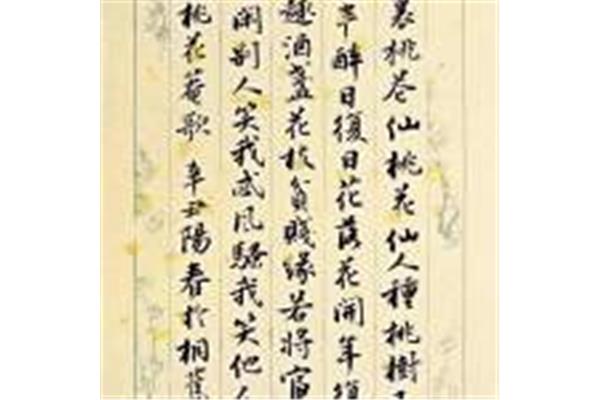 裏桃花仙桃花仙人種桃樹
半醉日復日花落花開年復
趣酒盞花枝貧賤緣若將富
閑別人笑我忒风騷我笑他人
桃花菴歌 辛丑陽春於桐